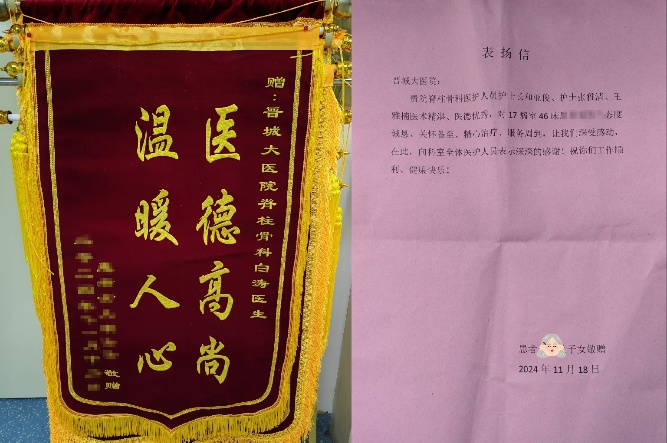 赠：晋城大医院脊柱骨科白涛医生
医德高尚
温暖人心
敬赠
二零二四年十一月十
表扬信
晋城大医院：
贵院脊柱骨科医护人员护士长和亚俊、护士张
雅楠医术精湛、医德优秀，对17病室46床态度
诚恳、关怀备至、精心治疗，服务周到，让我们深受感动，
在此，向科室全体医护人员表示深深的感谢！祝你们工作顺
利、健康快乐！
患者子女敬赠
2024年11月18日